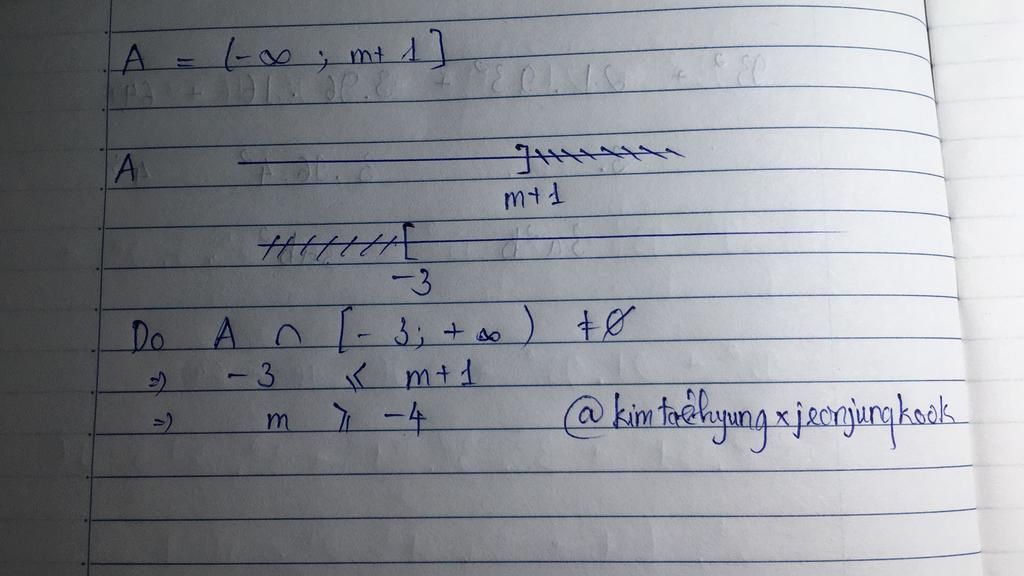 A = (-∞ ; m+1]
A
m+1
-3
Do A ∩ [-3; +∞) ≠ ∅
⇒ -3 ⩽ m+1
⇒ m ⩾ -4 @kimtaehyung x jeonjungkook